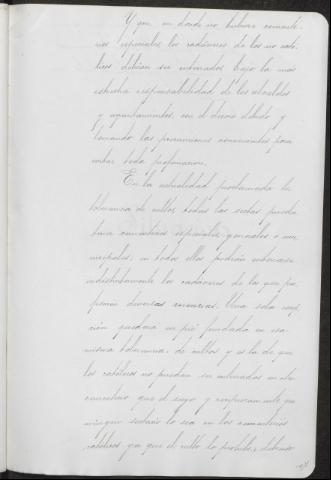 Y que, en donde no hubiere cemente-
rios especiales los cadáveres de los no cató-
licos debían ser inhumados bajo la mas
estrecha responsabilidad de los alcaldes
y ayuntamientos, con el decoro debido y
tomando las precauciones convenientes para
evitar toda profanacion.
En la actualidad proclamada la
tolerancia de cultos todas las sectas pueden
tener cementerios especiales generales o mu-
nicipales; en todos ellos podrán inhumarse
indistintamente los cadáveres de los que pro-
fesaron diversas creencias. Una sola excep-
ción quedará en pié fundada en esa
misma tolerancia de cultos y es la de que
los católicos no puedan ser inhumados en otro
cementerio que el suyo y recíprocamente que
ninguno sectario lo sea en los cementerios
católicos ya que el culto lo prohibe, debiendo